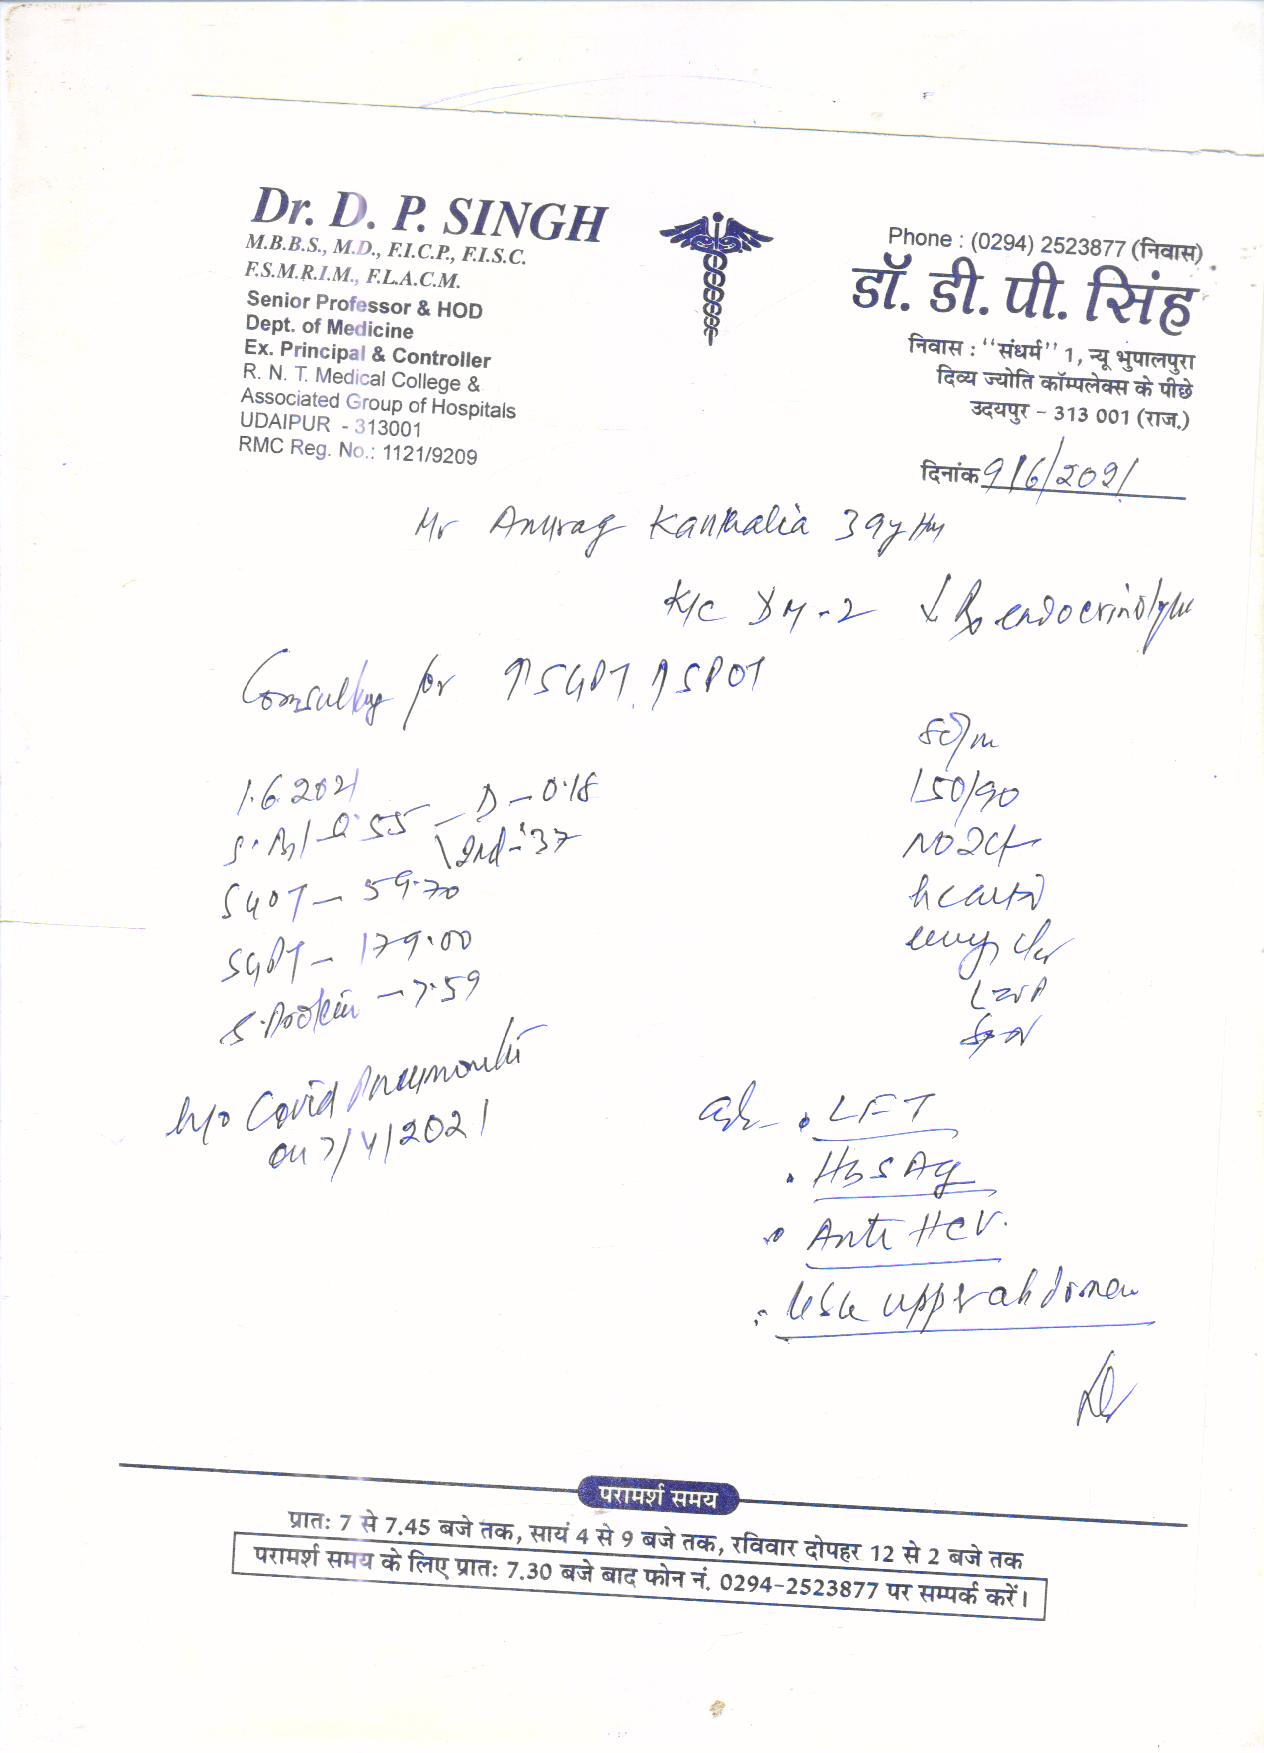 Dr. D. P. SINGH
M.B.B.S., M.D., F.I.C.P., F.I.S.C.
F.S.M.R.I.M., F.L.A.C.M.
Senior Professor & HOD
Dept. of Medicine
Ex. Principal & Controller
R. N. T. Medical College &
Associated Group of Hospitals
UDAIPUR - 313001
RMC Reg. No.: 1121/9209
Phone : (0294) 2523877 (निवास)
डॉ. डी. पी. सिंह
निवास : "संधर्म" 1, न्यू भुपालपुरा
दिव्य ज्योति कॉम्पलेक्स के पीछे
उदयपुर - 313 001 (राज.)
दिनांक 9/6/2021
Mr Anurag Kanthalia 39y
K/C DM-2 endocrinologist
Consulting for ↑SGPT, ↑SPOT
1.6.2021
0.55 - D - 0.18
Ind - .37
SGOT - 59.70
SGPT - 179.00
S. Protein - 7.59
80/m
150/90
h/o Covid Pneumonitis
on 7/4/2021
adv. LFT
. HBSAg
. Anti HCV.
. USG upper abdomen
परामर्श समय
प्रातः 7 से 7.45 बजे तक, सायं 4 से 9 बजे तक, रविवार दोपहर 12 से 2 बजे तक
परामर्श समय के लिए प्रातः 7.30 बजे बाद फोन नं. 0294-2523877 पर सम्पर्क करें।